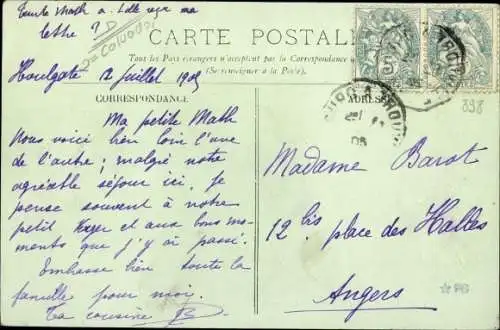 Tante Math a-t-elle reçu ma
lettre ?
CARTE POSTALE
Tous les Pays étrangers n'acceptent pas la Correspondance
(Se renseigner à la Poste).
Houlgate 12 juillet 1905
CORRESPONDANCE
ADRESSE
Ma petite Math
Nous voici bien loin l'une
de l'autre ; malgré notre
agréable séjour ici, je
pense souvent à notre
petit et aux bons mo-
ments que j'y ai passé.
Embrasse bien toute la
famille pour moi.
Ta cousine B
Madame Barot
12 bis place des Halles
Angers
338